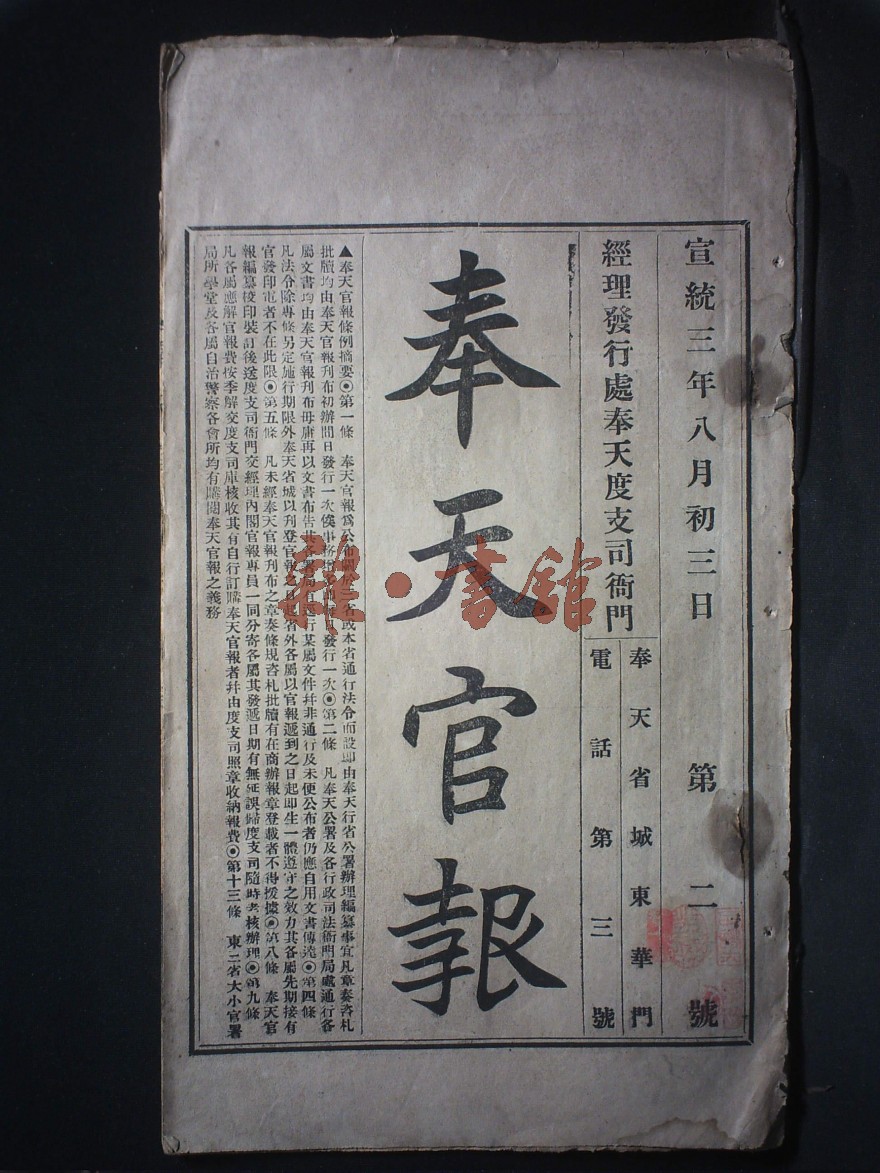 宣統三年八月初三日 第二號
經理發行處奉天度支司衙門
奉天省城東華門
電話第三號
奉天官報
▲奉天官報條例摘要◉第一條 奉天官報爲公布東三省或本省通行法令而設即由奉天行省公署辦理編纂事宜凡章奏咨札
批牘均由奉天官報刊布初辦間日發行一次俟事務發行一次◉第二條 凡奉天公署及各行政司法衙門局處通行各
屬文書均由奉天官報刊布毋庸再以文書布告其各署局有逕行某屬文件幷非通行及未便公布者仍應自用文書傳達◉第四條
凡法令除專條另定施行期限外奉天省城以刋登官報之日起省外各屬以官報遞到之日起即生一體遵守之效力其各屬先期接有
官發印電者不在此限◉第五條 凡未經奉天官報刋布之章奏條規咨札批牘有在商辦報章登載者不得援據◉第八條 奉天官
報編纂校印裝訂後送度支司衙門交經理內閣官報專員一同分寄各屬其發遞日期有無延誤歸度支司隨時考核辦理◉第九條
凡各屬應解官報費按季解交度支司庫核收其有自行訂購奉天官報者幷由度支司照章收納報費◉第十三條 東三省大小官署
局所學堂及各屬自治警察各會所均有購閱奉天官報之義務
雜·書館